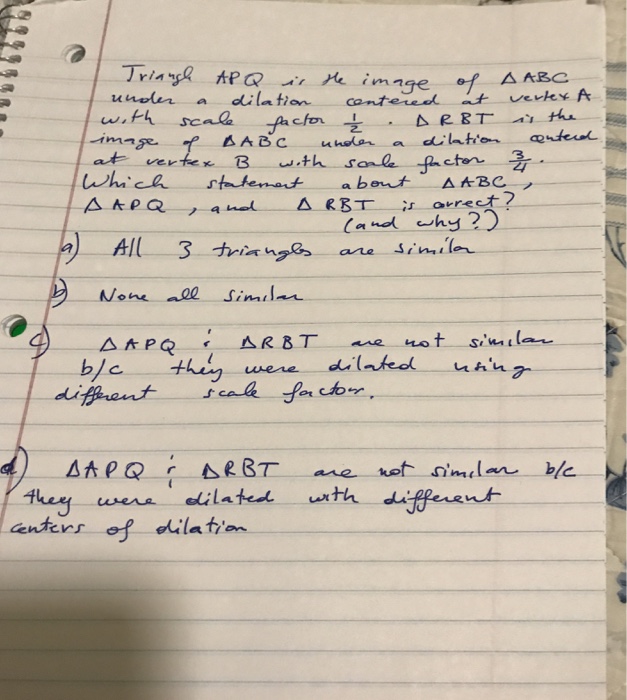 Triangle APQ is the image of ΔABC
under a dilation centered at vertex A
with scale factor 1/2. ΔRBT is the
image of ΔABC under a dilation centered
at vertex B with scale factor 3/4.
Which statement about ΔABC,
ΔAPQ, and ΔRBT is correct?
(and why?)
a) All 3 triangles are similar
b) None all similar
c) ΔAPQ & ΔRBT are not similar
b/c they were dilated using
different scale factor.
d) ΔAPQ & ΔRBT are not similar b/c
they were dilated with different
centers of dilation